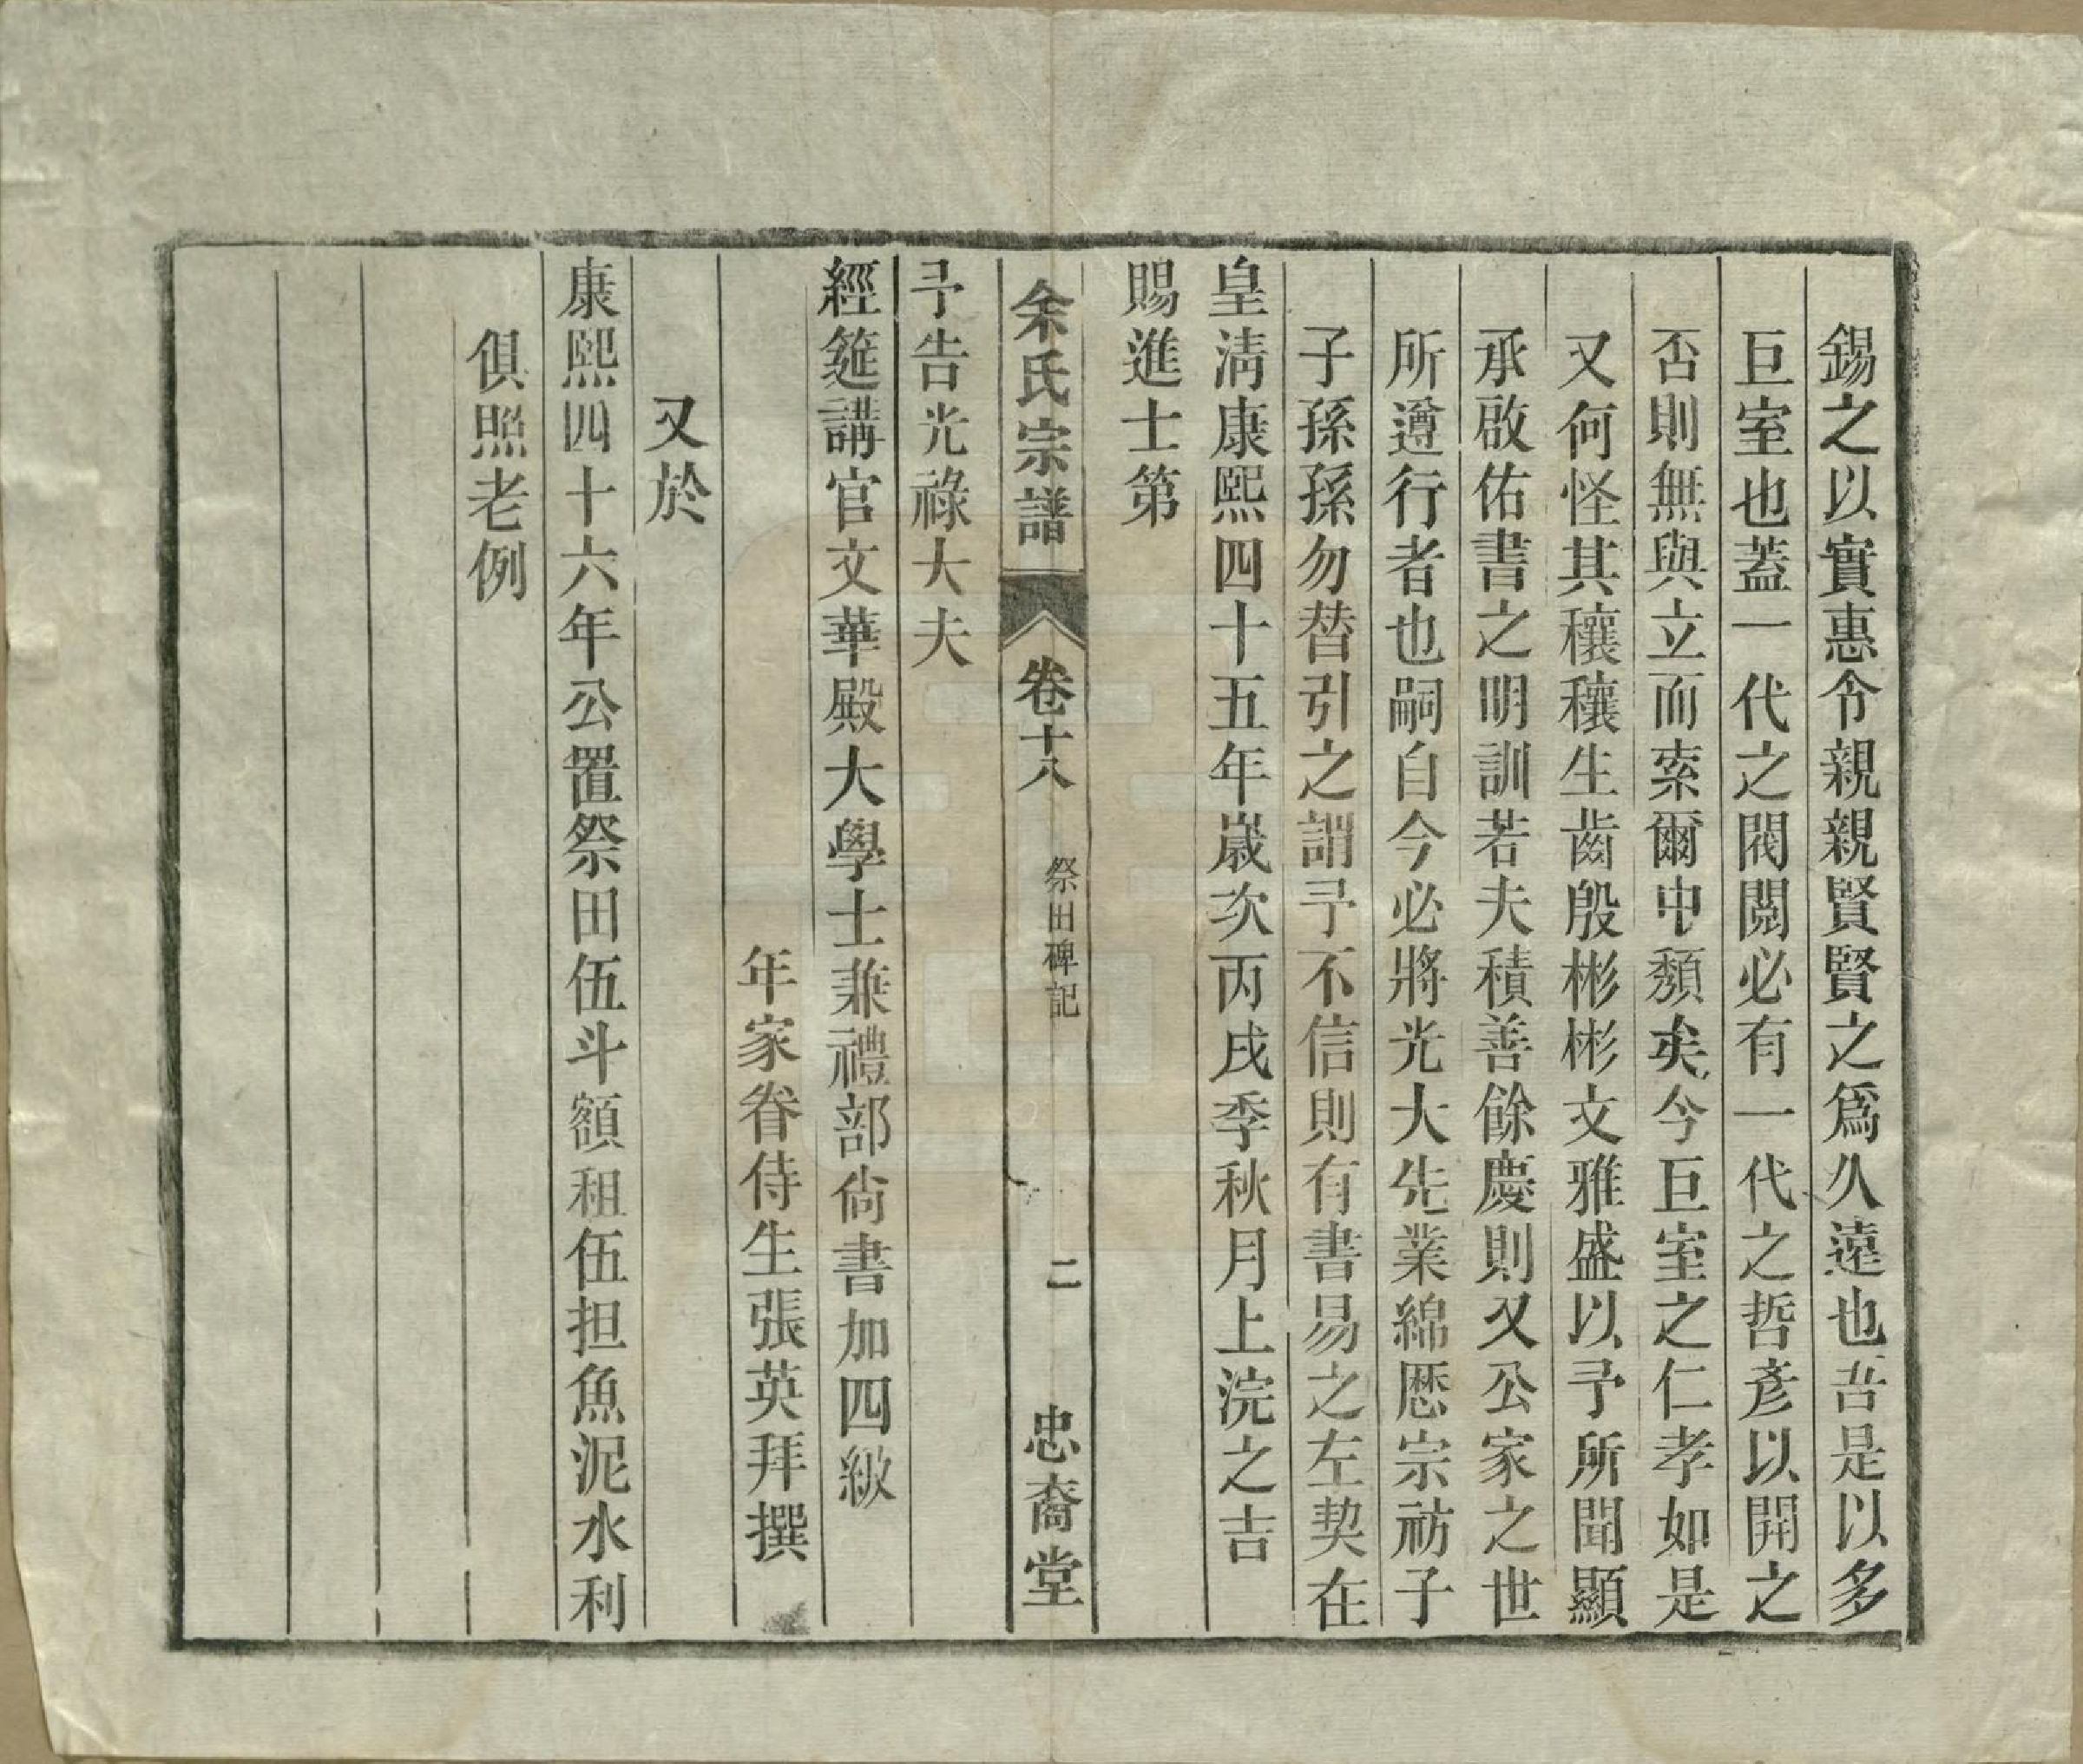 錫之以實惠令親親賢賢之爲久遠也吾是以多
巨室也蓋一代之閥閱必有一代之哲彥以開之
否則無與立而索爾中頽矣今巨室之仁孝如是
又何怪其穰穰生齒殷彬彬文雅盛以予所聞顯
承啟佑書之明訓若夫積善餘慶則又公家之世
所遵行者也嗣自今必將光大先業綿歷宗祊子
子孫孫勿替引之謂予不信則有書昜之左契在
皇淸康熙四十五年歲次丙戌季秋月上浣之吉
賜進士第
余氏宗譜 卷十八 祭田碑記 二 忠裔堂
予告光祿大夫
經筵講官文華殿大學士兼禮部尙書加四級
年家眷侍生張英拜撰
又於
康熙四十六年公置祭田伍斗額租伍担魚泥水利
俱照老例